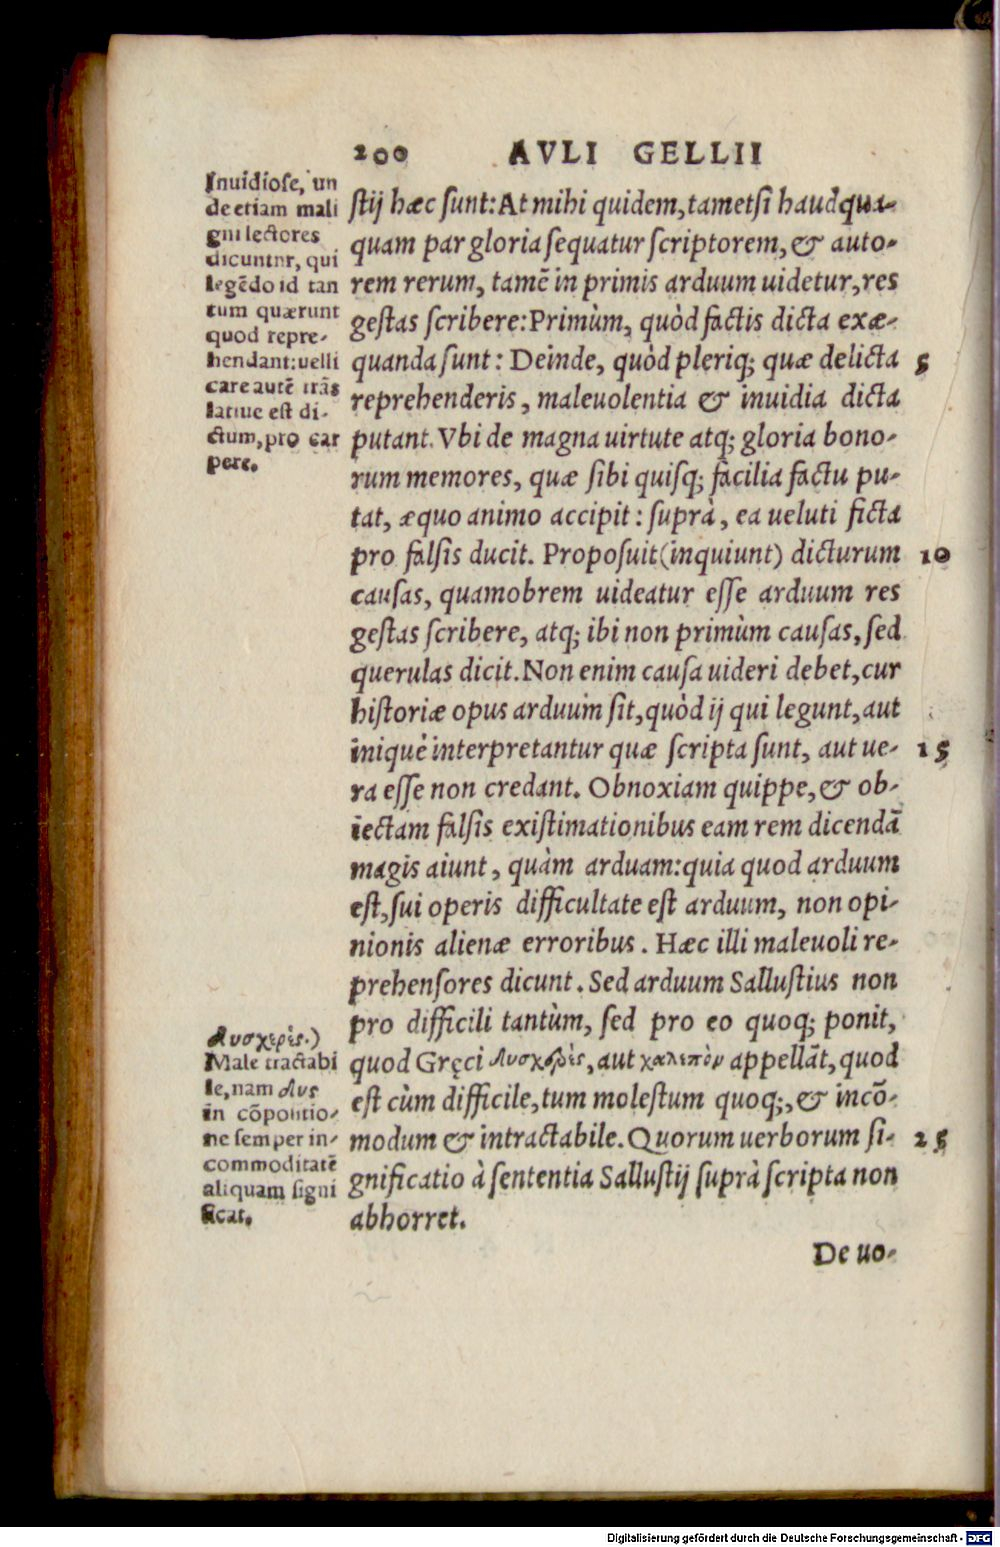 200 AVLI GELLII
Inuidiose, un
de etiam mali
gni lectores
dicuntur, qui
legẽdo id tan
tum quærunt
quod repre-
hendant: uelli
care autẽ trãs
latiue est di-
ctum, pro car
pere.
stij hæc sunt: At mihi quidem, tametsi haudqua-
quam par gloria sequatur scriptorem, & auto-
rem rerum, tamẽ in primis arduum uidetur, res
gestas scribere: Primùm, quòd factis dicta exæ-
quanda sunt: Deinde, quòd pleriq; quæ delicta 5
reprehenderis, maleuolentia & inuidia dicta
putant. Vbi de magna uirtute atq; gloria bono-
rum memores, quæ sibi quisq; facilia factu pu-
tat, æquo animo accipit: suprà, ea ueluti ficta
pro falsis ducit. Proposuit (inquiunt) dicturum 10
causas, quamobrem uideatur esse arduum res
gestas scribere, atq; ibi non primùm causas, sed
querulas dicit. Non enim causa uideri debet, cur
historiæ opus arduum sit, quòd ij qui legunt, aut
iniquè interpretantur quæ scripta sunt, aut ue- 15
ra esse non credant. Obnoxiam quippe, & ob-
iectam falsis existimationibus eam rem dicendã
magis aiunt, quàm arduam: quia quod arduum
est, sui operis difficultate est arduum, non opi-
nionis alienæ erroribus. Hæc illi maleuoli re-
prehensores dicunt. Sed arduum Sallustius non
pro difficili tantùm, sed pro eo quoq; ponit,
quod Gręci δυσχερὲς, aut χαλεπὸν appellãt, quod
est cùm difficile, tum molestum quoq;, & incõ-
modum & intractabile. Quorum uerborum si- 25
gnificatio à sententia Sallustij suprà scripta non
abhorret.
δυσχερὲς.)
Male tractabi
le, nam δυς
in cõpositio-
ne semper in-
commoditatẽ
aliquam signi
ficat.
De uo-
Digitalisierung gefördert durch die Deutsche Forschungsgemeinschaft - DFG